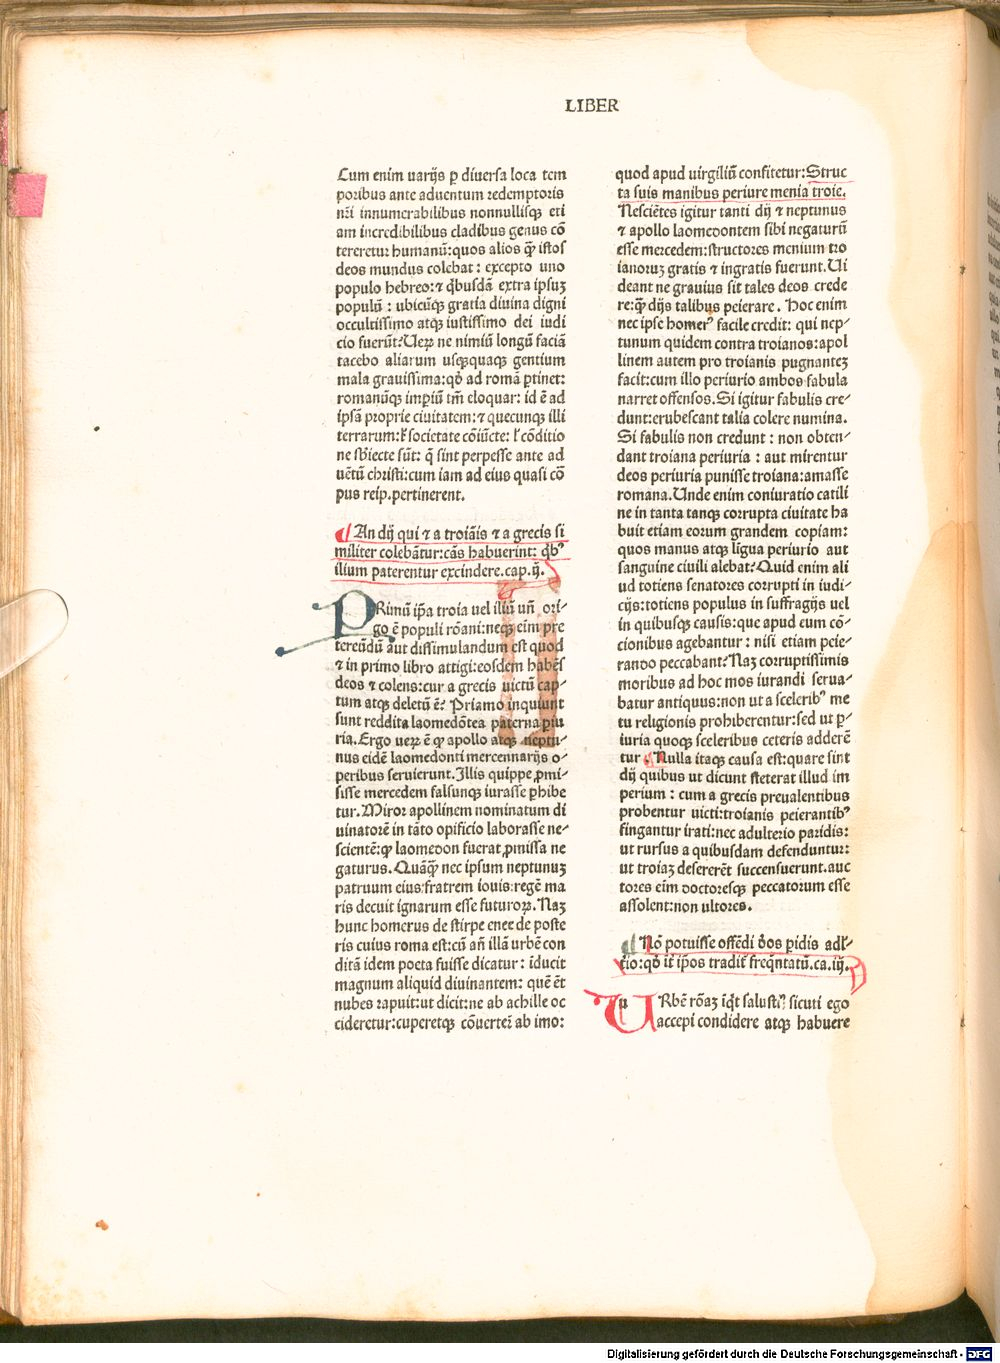 LIBER
Cum enim uarijs ꝑ diuersa loca tem
poribus ante aduentum redemptoris
nr̄i innumerabilibus nonnullisqꝫ eti
am incredibilibus cladibus genus cō
tereretur humanū:quos alios q̄ꝫ istos
deos mundus colebat: excepto uno
populo hebreo:⁊ q̇busdā extra ipsuꝫ
populū: ubicūqꝫ gratia diuina digni
occultissimo atqꝫ iustissimo dei iudi
cio fuerūt?Ueꝝ ne nimiū longū faciā
tacebo aliarum usqꝫquaqꝫ gentium
mala grauissima:qđ ad romā ꝑtinet:
romanūqꝫ imꝑiū tm̄ eloquar: id ē ad
ipsā proprie ciuitatem:⁊ quecunqꝫ illi
terrarum:ł societate cōiūcte: ł cōditio
ne sbiecte sūt: q̄ sint perpesse ante ad
uētū christi:cum iam ad eius quasi cō
pus reip.pertinerent.
¶An dij qui ⁊ a troiāis ⁊ a grecis si
militer colebātur:cās habuerint: q̇bꝰ
ilium paterentur excindere.cap.ij.
PRimū ip̄a troia uel iliū un̄ ori-
go ē populi rōani:neqꝫ eīm pre
tereūdū aut dissimulandum est quod
⁊ in primo libro attigi:eosdem habēs
deos ⁊ colens:cur a grecis uictū cap-
tum atqꝫ deletū ē? Priamo inquiunt
sunt reddita laomedōtea paterna ꝑiu
ria. Ergo ueꝝ ē ꝙ apollo atqꝫ neptu-
nus eidē laomedonti mercennarijs o-
peribus seruierunt. Illis quippe ꝓmi-
sisse mercedem falsunqꝫ iurasse ꝑhibe
tur. Miror apollinem nominatum di
uinatorē in tāto opificio laborasse ne-
scientē:ꝙ laomedon fuerat ꝓmissa ne
gaturus. Quāq̄ꝫ nec ipsum neptunuꝫ
patruum eius:fratrem iouis:regē ma
ris decuit ignarum esse futuroꝝ. Naꝫ
hunc homerus de stirpe enee de poste
ris cuius roma est:cū an̄ illā urbē con
ditā idem poeta fuisse dicatur: īducit
magnum aliquid diuinantem: quē ēt
nubes rapuit:ut dicit:ne ab achille oc
cideretur:cuperetqꝫ cōuerteī ab imo:
quod apud uirgiliū confitetur: Struc
ta suis manibus periure menia troie.
Nesciētes igitur tanti dij ⁊ neptunus
⁊ apollo laomedontem sibi negaturū
esse mercedem:structores menium tro
ianoruꝫ gratis ⁊ ingratis fuerunt. Ui
deant ne grauius sit tales deos crede
re:q̄ꝫ dijs talibus peierare. Hoc enim
nec ipse homerꝰ facile credit: qui nep-
tunum quidem contra troianos:apol
linem autem pro troianis pugnanteꝫ
facit:cum illo periurio ambos fabula
narret offensos. Si igitur fabulis cre-
dunt:erubescant talia colere numina.
Si fabulis non credunt: non obten-
dant troiana periuria: aut mirentur
deos periuria punisse troiana:amasse
romana. Unde enim coniuratio catili
ne in tanta tanqꝫ corrupta ciuitate ha
buit etiam eorum grandem copiam:
quos manus atqꝫ līgua periurio aut
sanguine ciuili alebat?Quid enim ali
ud totiens senatores corrupti in iudi-
cijs:totiens populus in suffragijs uel
in quibusqꝫ causis:que apud eum cō-
cionibus agebantur: nisi etiam peie-
rando peccabant?Naꝫ corruptissimis
moribus ad hoc mos iurandi serua-
batur antiquus:non ut a sceleribꝰ me
tu religionis prohiberentur:sed ut ꝑ-
iuria quoqꝫ sceleribus ceteris adderē
tur ¶Nulla itaqꝫ causa est:quare sint
dij quibus ut dicunt steterat illud im
perium: cum a grecis preualentibus
probentur uicti:troianis peierantibꝰ
fingantur irati:nec adulterio paridis:
ut rursus a quibusdam defenduntur:
ut troiaꝫ desererēt succensuerunt. auc
tores eīm doctoresqꝫ peccatorum esse
assolent:non ultores.
¶Nō potuisse offēdi dōs ꝑidis adł-
tio:qđ īt̄ ip̄os tradit̄ freq̄ntatū.ca.iij.
URbē rōaꝫ īq̇t salustiꝰ sicuti ego
accepi condidere atqꝫ habuere
Digitalisierung gefördert durch die Deutsche Forschungsgemeinschaft - DFG